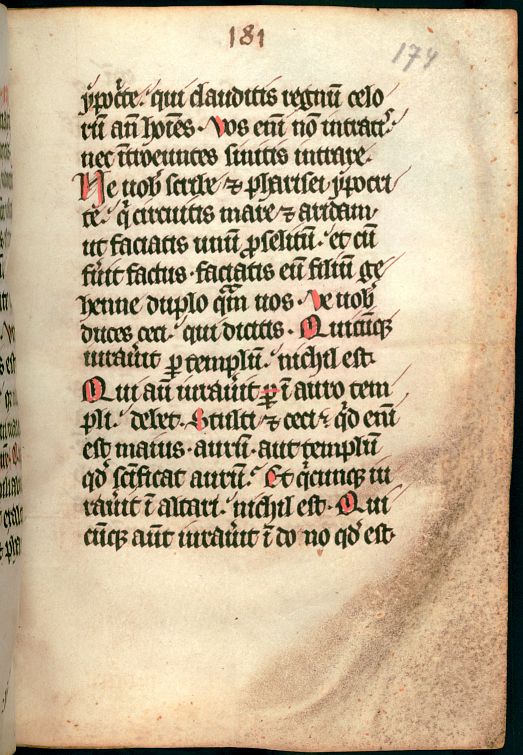 181
174
ypoc̃te. qui clauditis regnũ celo
rũ añ hoĩes. Vos enĩ nõ intratꝭ.
nec ĩtroeuntes sinitis intrare.
Ve uob̃ scribe ⁊ pharisei ypocri
te. q̃ circuitis mare ⁊ aridam.
ut faciatis unũ ꝓselitũ. et cũ
fũit factus. faciatis eũ filiũ ge
henne duplo qᷓm uos. Ve uob̃
duces ceci. qui dicitis. Quicũqꝫ
iurau͛it ꝑ templũ. nichil est.
Qui aũt iurau͛it ĩ auro tem
pli. debet. Stulti ⁊ ceci. qͥd enĩ
est maius. aurũ. aut templũ
qd̃ sc̃ificat aurũ. Et q̃cunqꝫ iu
rau͛it ĩ altari. nichil est. Qui
cũqꝫ aũt iurau͛it ĩ do no qd̃ est